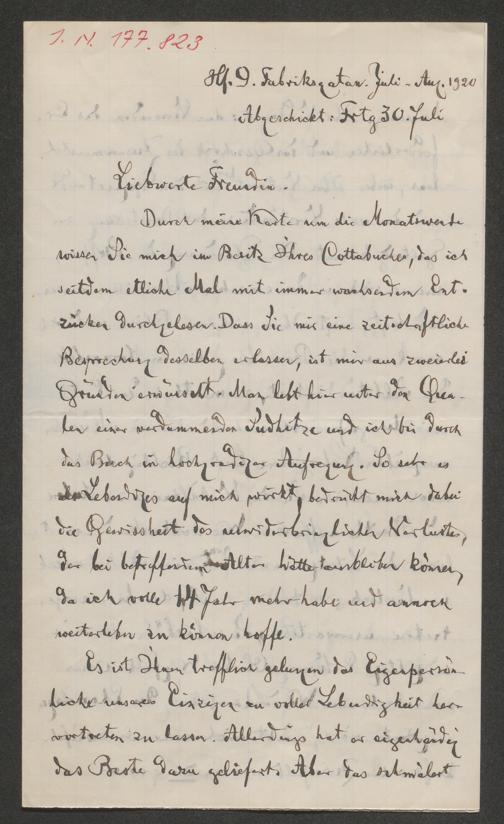 J. N. 177.823
Hf. 9. Fabriksgatan. Juli - Aug. 1920
Abgeschickt: Frtg 30. Juli
Liebwerte Freundin.
Durch meine Karte um die Monatswende
wissen Sie mich im Besitz Ihres Cottabuches, das ich
seitdem etliche Mal mit immer wachsendem Ent-
zücken durchgelesen. Dass Sie mir eine zeitschriftliche
Besprechung desselben erlassen, ist mir aus zweierlei
Gründen erwünscht. Man lebt hier unter den Qua-
len einer verdammenden Sudhitze und ich bin durch
das Buch in hochgradiger Aufregung. So sehr es
als Lebendiges auf mich wirkt, bedrückt mich dabei
die Gewissheit des unwiderbringlichen Verlustes,
der bei betreffendem Alter hätte ausbleiben können,
da ich volle 14 Jahr mehr habe und annoch
weiterleben zu können hoffe.
Es ist Ihnen trefflich gelungen das Eigenpersön-
liche unseres Einzigen zu voller Lebendigkeit her-
vortreten zu lassen. Allerdings hat er eigenhändig
das Beste dazu geliefert. Aber das schmälert